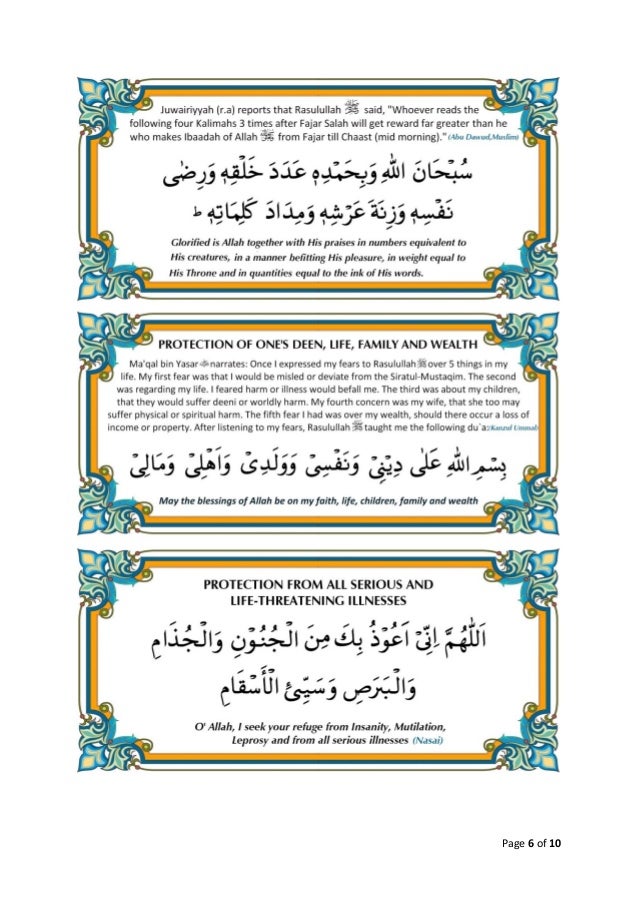 Juwairiyyah (r.a) reports that Rasulullah ﷺ said, "Whoever reads the
following four Kalimahs 3 times after Fajar Salah will get reward far greater than he
who makes Ibaadah of Allah from Fajar till Chaast (mid morning)." (Abu Dawud,Muslim)
سُبْحَانَ اللهِ وَبِحَمْدِهٖ عَدَدَ خَلْقِهٖ وَرِضٰى
نَفْسِهٖ وَزِنَةَ عَرْشِهٖ وَمِدَادَ كَلِمَاتِهٖ ط
Glorified is Allah together with His praises in numbers equivalent to
His creatures, in a manner befitting His pleasure, in weight equal to
His Throne and in quantities equal to the ink of His words.
PROTECTION OF ONE'S DEEN, LIFE, FAMILY AND WEALTH
Ma'qal bin Yasar narrates: Once I expressed my fears to Rasulullah ﷺ over 5 things in my
life. My first fear was that I would be misled or deviate from the Siratul-Mustaqim. The second
was regarding my life. I feared harm or illness would befall me. The third was about my children,
that they would suffer deeni or worldly harm. My fourth concern was my wife, that she too may
suffer physical or spiritual harm. The fifth fear I had was over my wealth, should there occur a loss of
income or property. After listening to my fears, Rasulullah ﷺ taught me the following du`a:(Kanzul Ummal)
بِسْمِ اللهِ عَلٰى دِيْنِيْ وَنَفْسِيْ وَوَلَدِيْ وَاَهْلِيْ وَمَالِيْ
May the blessings of Allah be on my faith, life, children, family and wealth
PROTECTION FROM ALL SERIOUS AND
LIFE-THREATENING ILLNESSES
اَللّٰهُمَّ اِنِّيْ اَعُوْذُ بِكَ مِنَ الْجُنُوْنِ وَالْجُذَامِ
وَالْبَرَصِ وَسَيِّئِ الْأَسْقَامِ
O' Allah, I seek your refuge from Insanity, Mutilation,
Leprosy and from all serious illnesses (Nasai)
Page 6 of 10